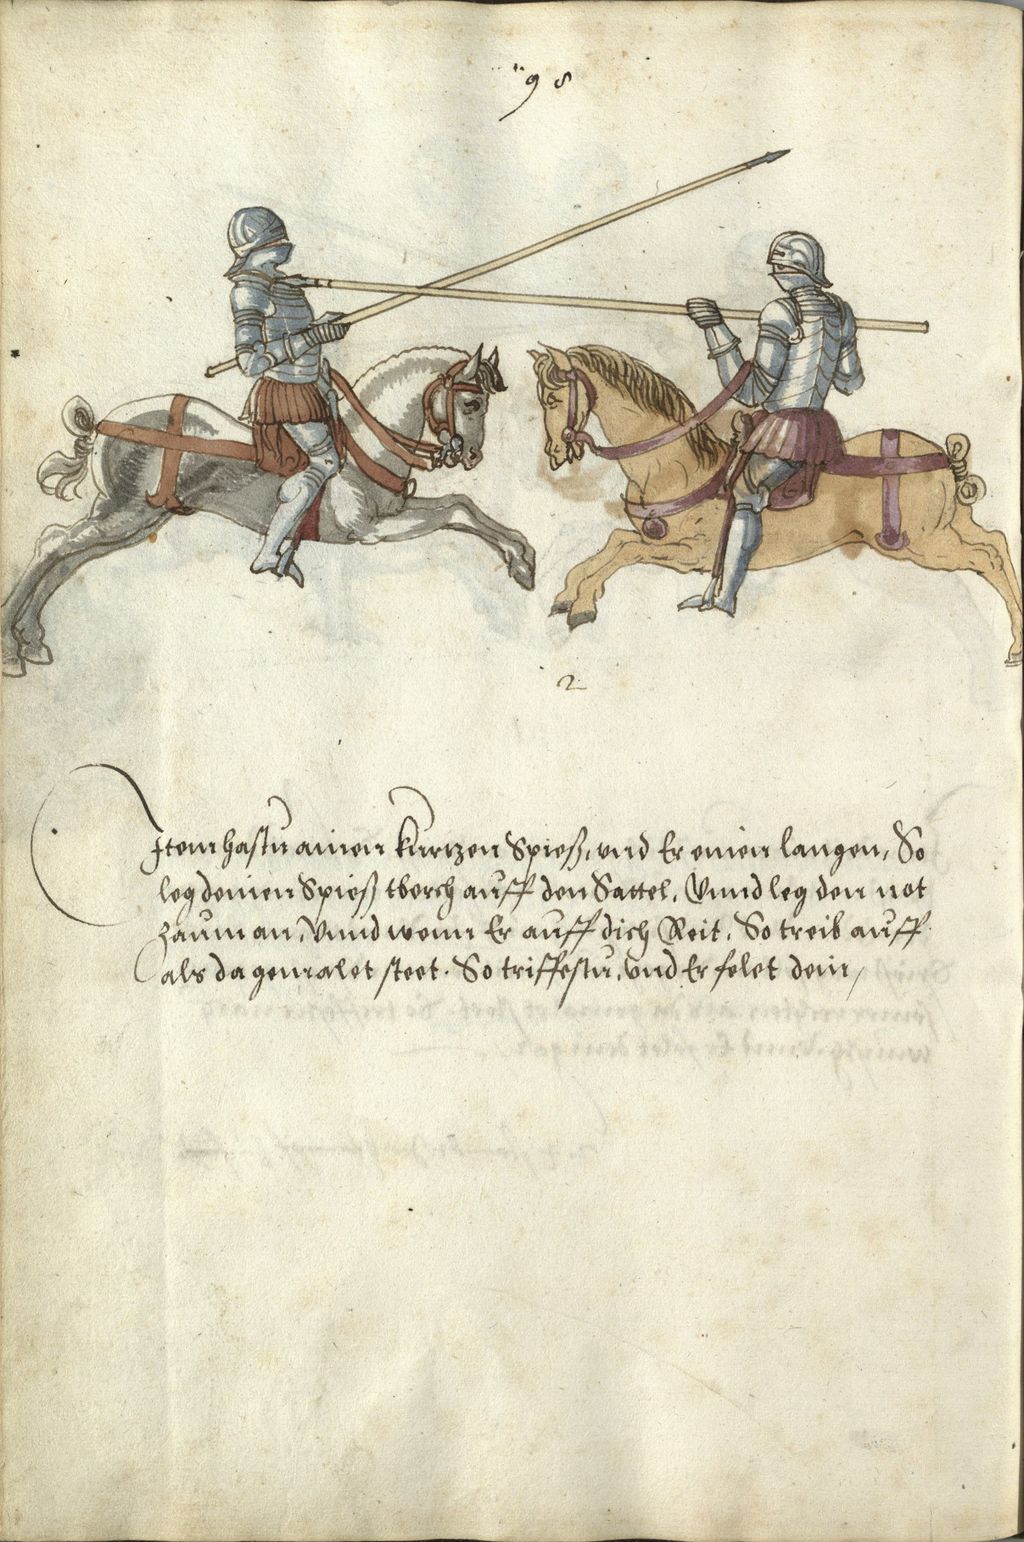 98
2
Item hastu ainen kurtzen Spieß, und Er einen langen, So
leg deinen Spieß tberch auff den Sattel, Vnnd leg den not
zaum an, Vnnd wenn Er auff dich Reit, So treib auff
als da gemalet steet. So triffestu, vnd Er felet dein,